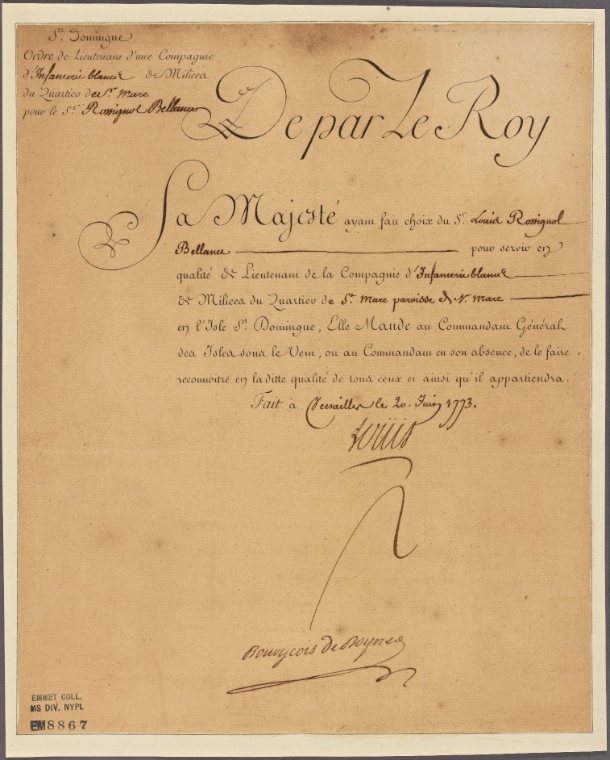 St. Domingue
Ordre de Lieutenant d'une Compagnie
d'Infanterie blanche de Milices
du Quartier de St. Marc
pour le Sr. Rossignol Bellanse
De par Le Roy
Sa Majesté ayant fait choix du Sr. Louis Rossignol
Bellanse pour servir en
qualité de Lieutenant de la Compagnie d'Infanterie blanche
de Milices du Quartier de St. Marc paroisse de St. Marc
en l'Isle St. Domingue, Elle Mande au Commandant Général
des Isles sous le Vent, ou au Commandant en son absence, de le faire
reconnoitre en la ditte qualité de tous ceux et ainsi qu'il appartiendra.
Fait à Versailles le 20. Juin 1773.
Louis
Bourgeois de Boynes
EMMET COLL.
MS DIV. NYPL
EM8867